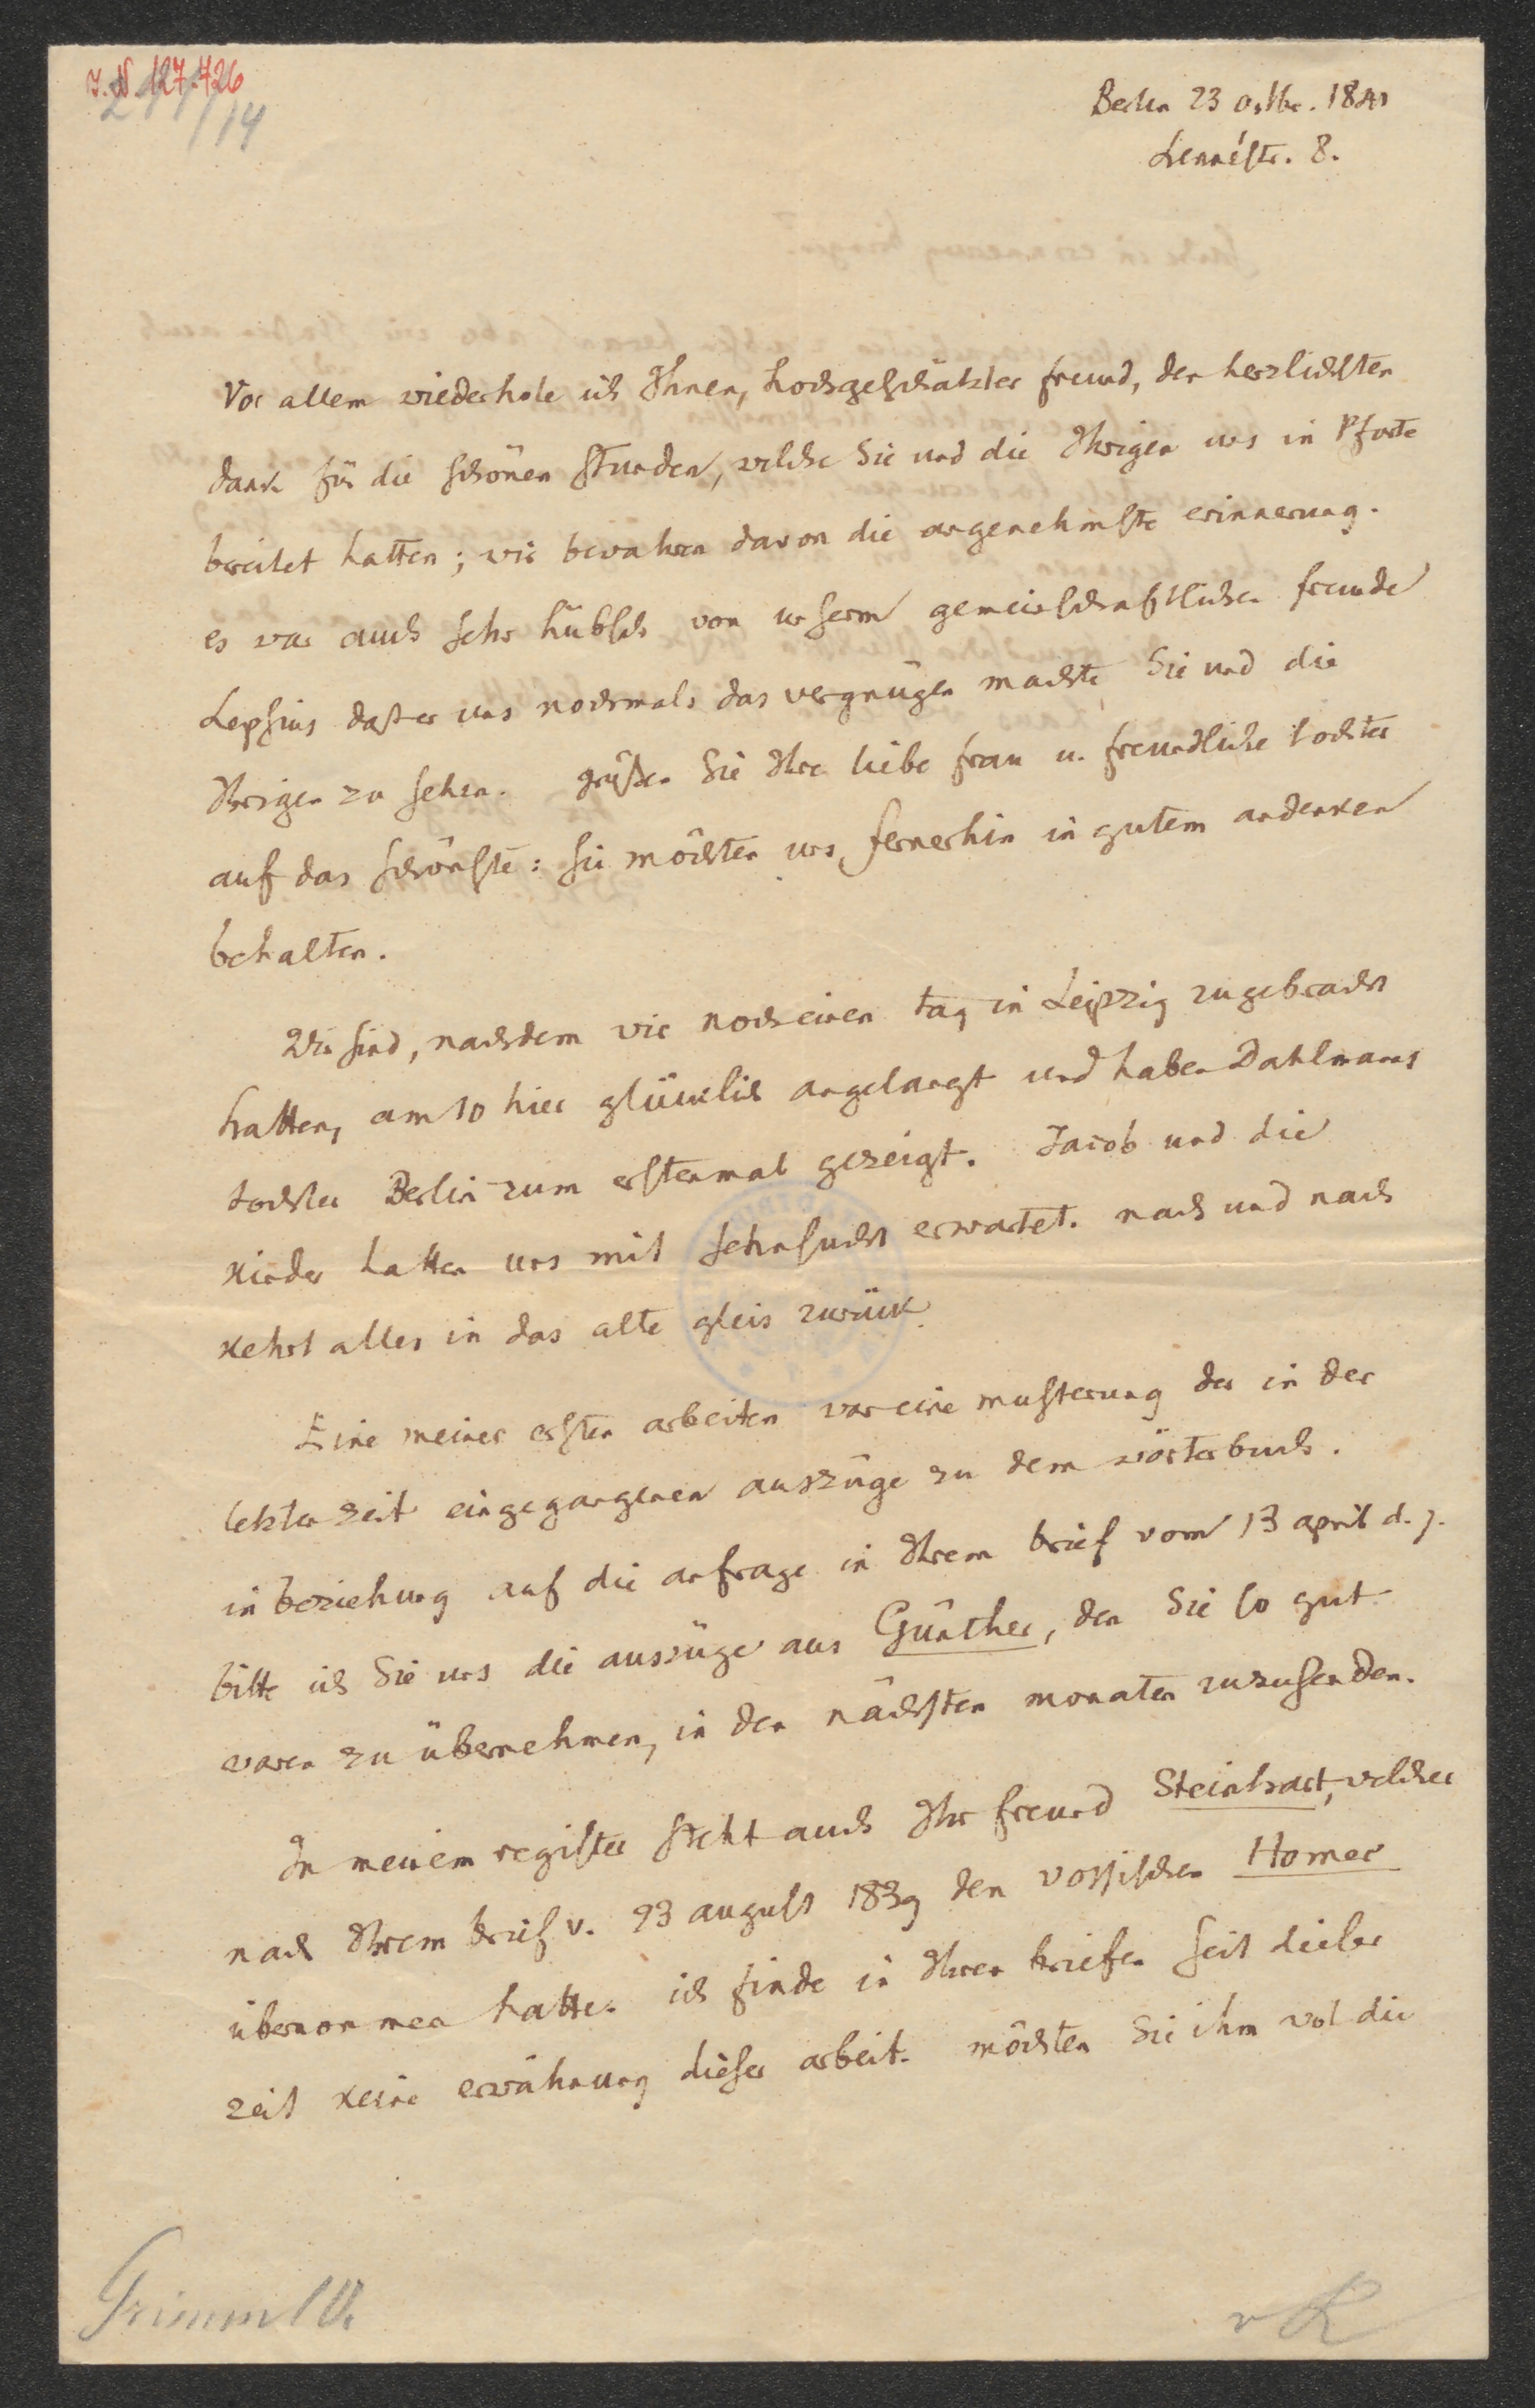 I. N. 127.426
Berlin 23 octbr. 1841
Lennéstr. 8.
Vor allem wiederhole ich Ihnen, hochgeschätzter freund, den herzlichsten
dank für die schönen stunden, welche Sie und die Ihrigen uns in Pforte
bereitet hatten; wir bewahren davon die angenehmste erinnerung.
es war auch sehr hübsch von unserm gemeinschaftlichen freunde
Lepsius daß er uns nochmals das vergnügen machte Sie und die
Ihrigen zu sehen. grüßen Sie Ihre liebe frau u. freundliche tochter
auf das schönste: sie möchten uns fernerhin in gutem andenken
behalten.
Wir sind, nachdem wir noch einen tag in Leipzig zugebracht
hatten, am 10 hier glücklich angelangt und haben Dahlmanns
tochter Berlin zum erstenmal gezeigt. Jacob und die
kinder hatten uns mit sehnsucht erwartet. nach und nach
kehrt alles in das alte gleis zurück.
Eine meiner ersten arbeiten war eine musterung der in der
letzten zeit eingegangenen auszüge zu dem wörterbuch.
in beziehung auf die anfrage in Ihrem brief vom 13 april d. j.
bitte ich Sie uns die auszüge aus Günther, den Sie so gut
waren zu übernehmen, in den nächsten monaten zuzusenden.
In meinem register steht auch Ihr freund Steinhart, welcher
nach Ihrem brief v. 23 august 1839 den vossischen Homer
übernommen hatte. ich finde in Ihren briefen seit dieser
zeit keine erwähnung dieser arbeit. möchten Sie ihm wol die
Grimm W.